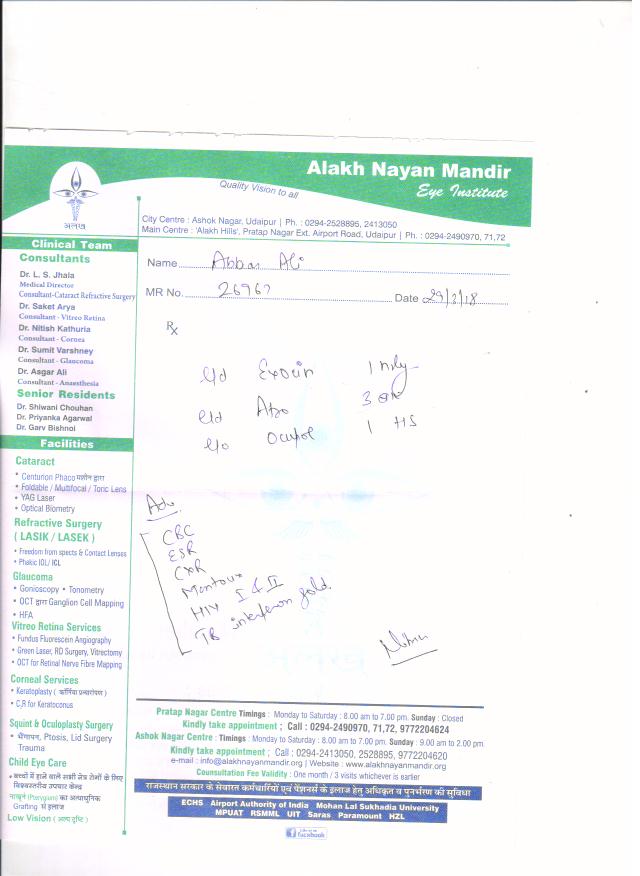 Alakh Nayan Mandir
Eye Institute
Quality Vision to all
अलख
City Centre : Ashok Nagar, Udaipur | Ph. : 0294-2528895, 2413050
Main Centre : 'Alakh Hills', Pratap Nagar Ext. Airport Road, Udaipur | Ph. : 0294-2490970, 71,72
Clinical Team
Consultants
Dr. L. S. Jhala
Medical Director
Consultant-Cataract Refractive Surgery
Dr. Saket Arya
Consultant - Vitreo Retina
Dr. Nitish Kathuria
Consultant - Cornea
Dr. Sumit Varshney
Consultant - Glaucoma
Dr. Asgar Ali
Consultant - Anaesthesia
Senior Residents
Dr. Shiwani Chouhan
Dr. Priyanka Agarwal
Dr. Garv Bishnoi
Facilities
Cataract
• Centurion Phaco मशीन द्वारा
• Foldable / Multifocal / Toric Lens
• YAG Laser
• Optical Biometry
Refractive Surgery
( LASIK / LASEK )
• Freedom from spects & Contact Lenses
• Phakic IOL/ ICL
Glaucoma
• Gonioscopy • Tonometry
• OCT द्वारा Ganglion Cell Mapping
• HFA
Vitreo Retina Services
• Fundus Fluorescein Angiography
• Green Laser, RD Surgery, Vitrectomy
• OCT for Retinal Nerve Fibre Mapping
Corneal Services
• Keratoplasty ( कॉर्निया प्रत्यारोपण )
• C3R for Keratoconus
Squint & Oculoplasty Surgery
• भैंगापन, Ptosis, Lid Surgery
Trauma
Child Eye Care
• बच्चों में होने वाले सभी नेत्र रोगों के लिए
विश्वस्तरीय उपचार केन्द्र
नाखूने (Pterygium) का अत्याधुनिक
Grafting से इलाज
Low Vision ( अल्प दृष्टि )
Name Abbas Ali
MR No. 26967 Date 29/3/18
Rx
e/d Exocin 1
e/d 3
e/o Ocupol 1 HS
Adv.
CBC
ESR
CXR
Mantoux
HIV I & II
TB interferon gold.
Pratap Nagar Centre Timings : Monday to Saturday : 8.00 am to 7.00 pm. Sunday : Closed
Kindly take appointment ; Call : 0294-2490970, 71,72, 9772204624
Ashok Nagar Centre : Timings : Monday to Saturday : 8.00 am to 7.00 pm. Sunday : 9.00 am to 2.00 pm.
Kindly take appointment ; Call : 0294-2413050, 2528895, 9772204620
e-mail : info@alakhnayanmandir.org | Website : www.alakhnayanmandir.org
Councultation Fee Validity : One month / 3 visits whichever is earlier
राजस्थान सरकार के सेवारत कर्मचारियों एवं पेंशनर्स के इलाज हेतु अधिकृत व पुनर्भरण की सुविधा
ECHS Airport Authority of India Mohan Lal Sukhadia University
MPUAT RSMML UIT Saras Paramount HZL
facebook